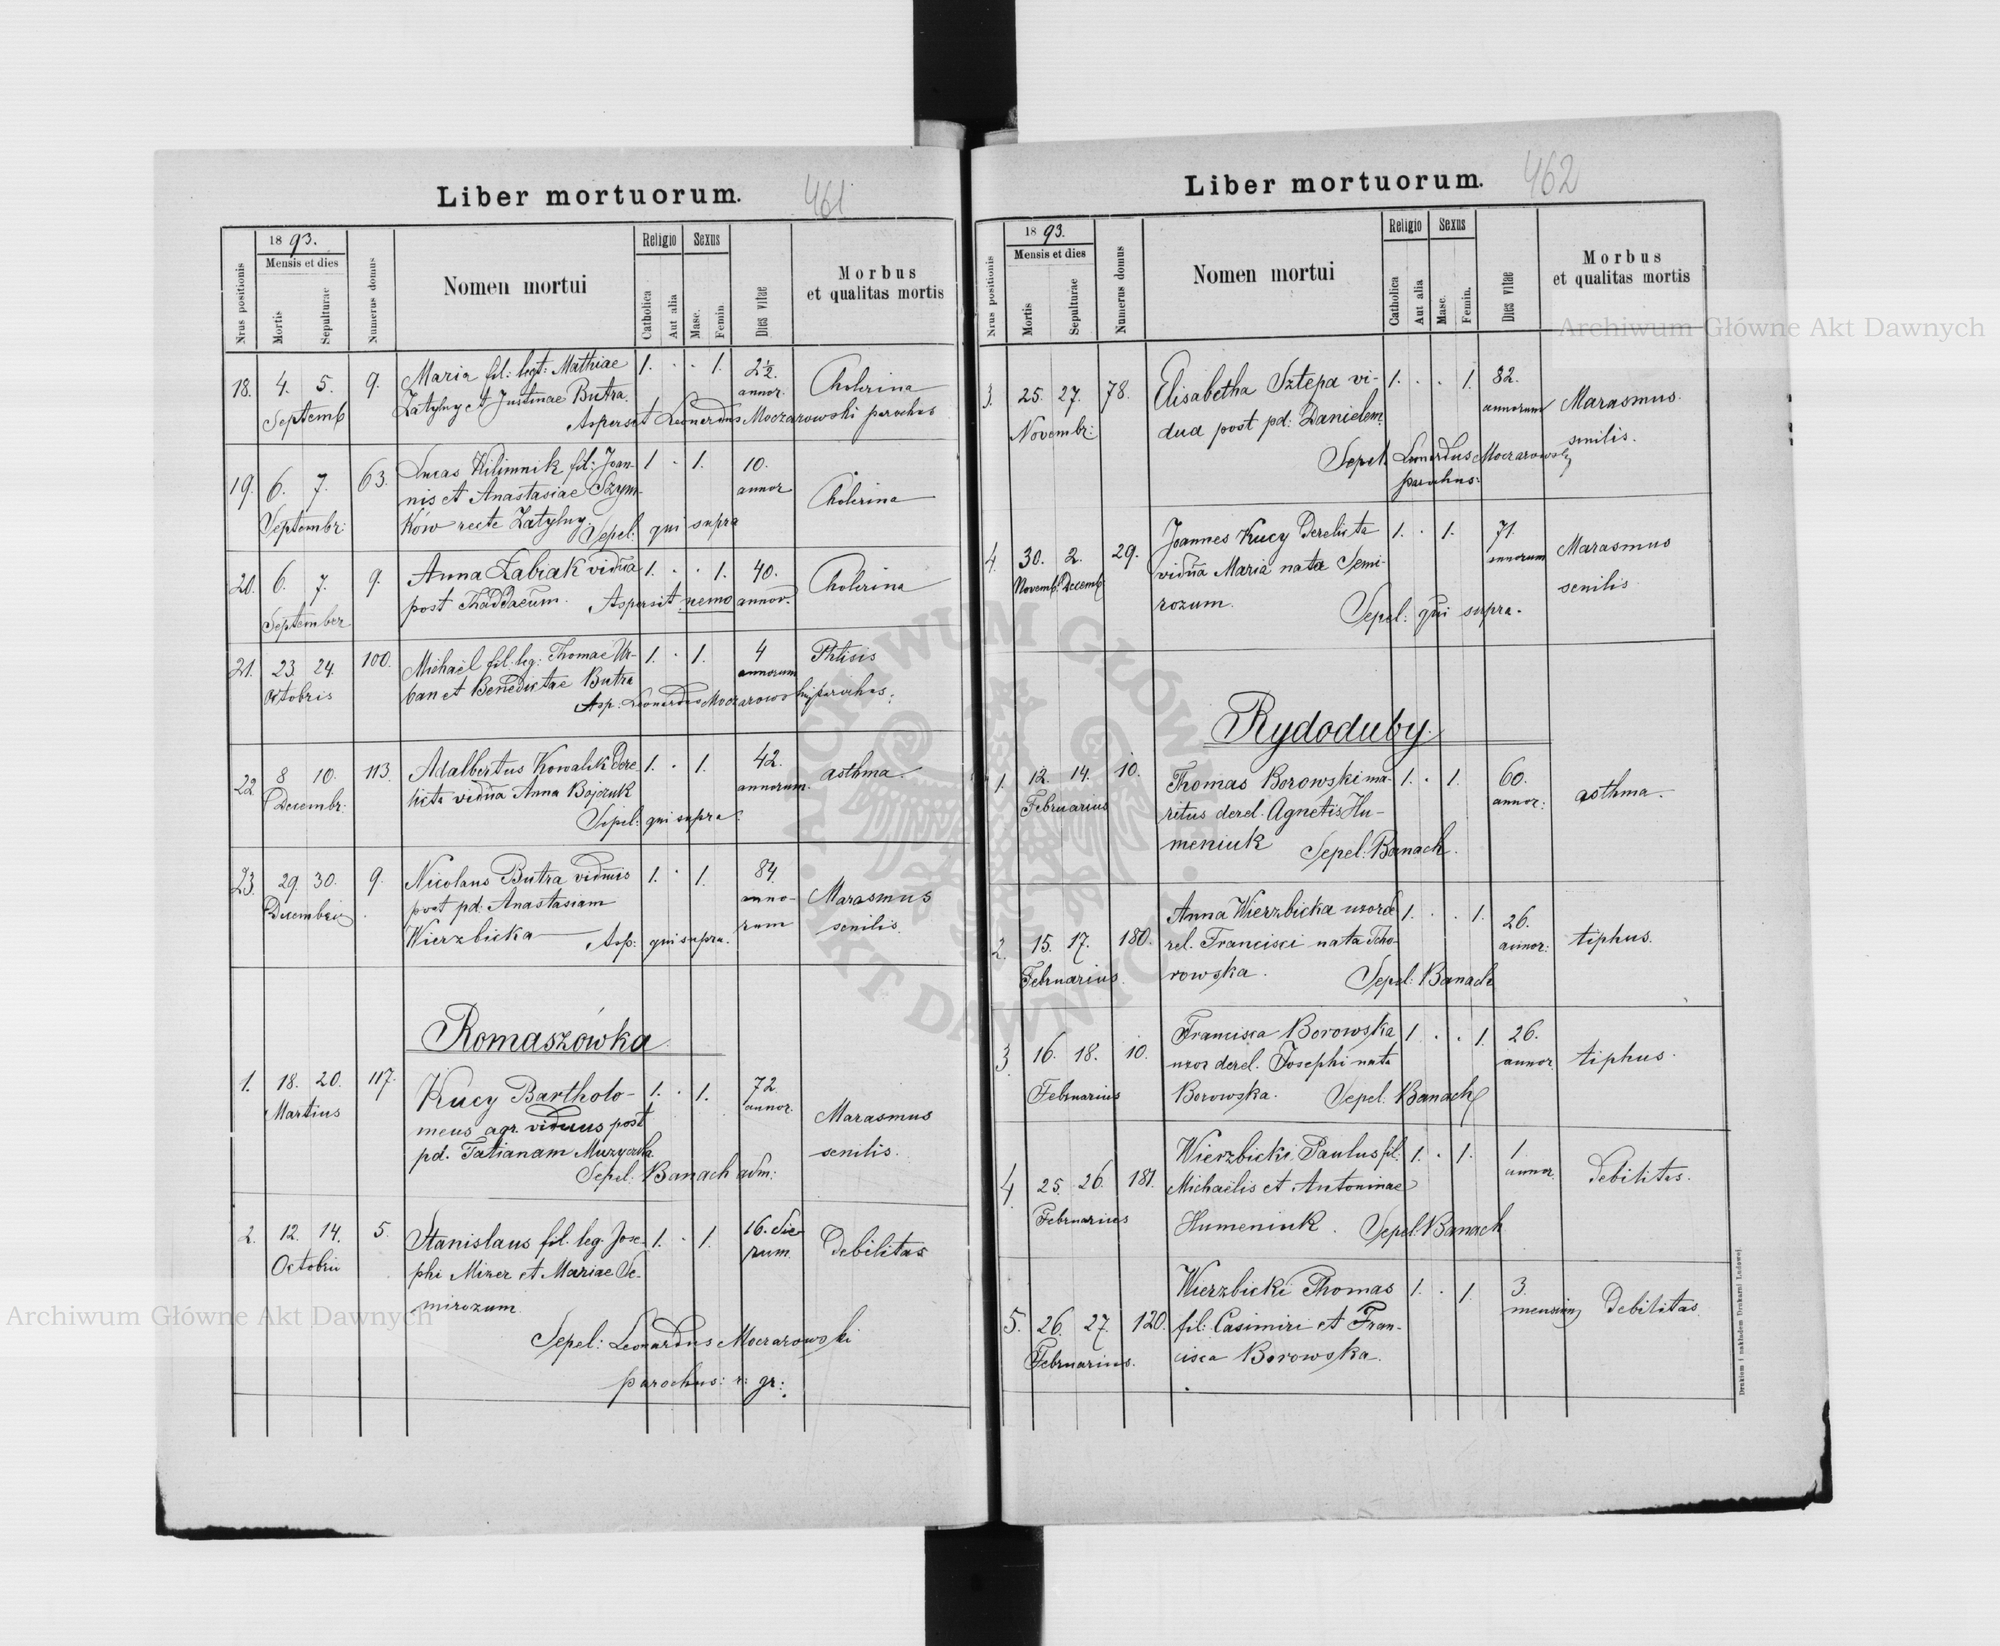 Liber mortuorum.
461
Nrus positionis
1893.
Mensis et dies
Mortis
Sepulturae
Numerus domus
Nomen mortui
Religio
Catholica
Aut alia
Sexus
Masc.
Femin.
Dies vitae
Morbus
et qualitas mortis
18. 4. 5. 9. Maria fil: legt: Mathiae 1. · · 1. 2½. Cholerina
Septemb Zatylny et Justinae Butra. annor.
Aspersit Leonardus Moczarowski parochus
19. 6. 7. 63. Lucas Hilimnik fil: Joan- 1 · 1. 10. Cholerina
Septembr: nis et Anastasiae Szym- annor
ków recte Zatylny. Sepel: qui supra
20. 6. 7. 9. Anna Łabiak vidua 1. · · 1. 40. Cholerina
September post Thaddaeum. Aspersit nemo annor.
21. 23. 24. 100. Michaël fil. leg: Thomae Ur- 1. · 1. 4 Phtisis
Octobris ban et Benedictae Butra annorum
Asp: Leonardus Moczarowski parochus.
22 8 10. 113. Adalbertus Kowalik dere 1. · 1. 42. asthma.
Decembr: licta vidua Anna Bojczuk annorum.
Sepel: qui supra.
23 29. 30. 9. Nicolaus Butra viduus 1. · 1. 84. Marasmus
Decembris post pd: Anastasiam anno- senilis.
Wierzbicka Asp: qui supra. rum
Romaszówka
1. 18. 20. 117. Kucy Bartholo- 1. · 1. 72 Marasmus
Martius meus agr. viduus post annor. senilis.
pd. Tatianam Muzyczka
Sepel: Banach adm:
2. 12. 14. 5. Stanislaus fil. leg. Jose- 1. · 1. 16. die- Debilitas
Octobris phi Mizer et Mariae Se- rum.
mirozum
Sepel: Leonardus Moczarowski
parochus: r: gr:
Liber mortuorum.
462
Nrus positionis
1893.
Mensis et dies
Mortis
Sepulturae
Numerus domus
Nomen mortui
Religio
Catholica
Aut alia
Sexus
Masc.
Femin.
Dies vitae
Morbus
et qualitas mortis
3. 25. 27. 78. Elisabetha Sztepa vi- 1. · · 1. 82. Marasmus
Novembr: dua post pd: Danielem. annorum senilis.
Sepel. Leonardus Moczarowski
parochus:
4. 30. 2. 29. Joannes Kucy Derelicta 1. · 1. 71. Marasmus
Novemb. Decemb vidua Maria nata Semi- annorum senilis
rozum. Sepel: qui supra.
Rydoduby.
1. 12. 14. 10. Thomas Borowski ma- 1. · 1. 60. asthma.
Februarius ritus derel. Agnetis Hu- annor:
meniuk Sepel: Banach.
2. 15. 17. 180. Anna Wierzbicka uxor de 1. · · 1. 26. tiphus.
Februarius. rel. Francisci nata Tcho- annor:
rowska. Sepel: Banach
3. 16. 18. 10. Francisca Borowska 1. · · 1. 26. tiphus.
Februarius uxor derel. Josephi nata annor.
Borowska. Sepel. Banach
4. 25. 26. 181. Wierzbicki Paulus fil. 1. · 1. 1 Debilitas.
Februarius Michaëlis et Antoninae annor.
Humeniuk. Sepel: Banach
5. 26. 27. 120. Wierzbicki Thomas 1. · 1. 3. Debilitas.
Februarius. fil: Casimiri et Fran- mensium
cisca Borowska.
Drukiem i nakładem Drukarni Ludowej
Archiwum Główne Akt Dawnych
Archiwum Główne Akt Dawnych
ARCHIWUM GŁÓWNE AKT DAWNYCH